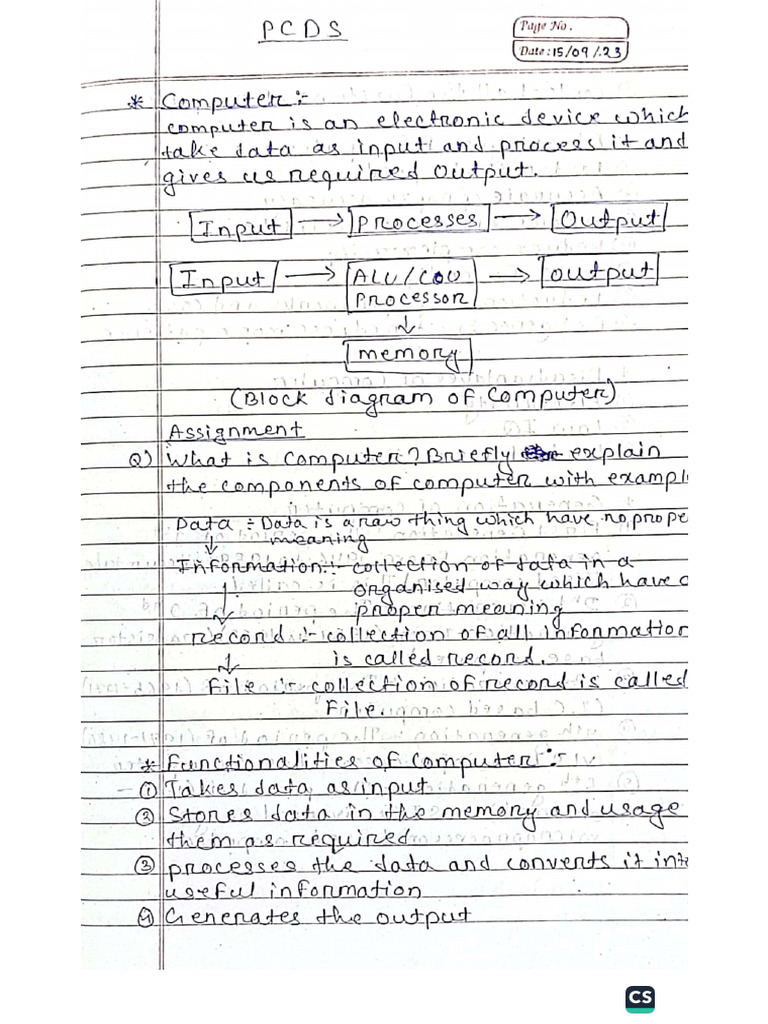 PCDS
Page No.
Date: 15/09/.23
* Computer:-
computer is an electronic device which
take data as input and process it and
gives us required output.
Input → Processes → Output
Input → ALU/COU → output
Processor
↓
memory
(Block diagram of computer)
Assignment
Q) What is computer? Briefly explain
the components of computer with exampl
Data :- Data is a raw thing which have no prope
↓ meaning
Information :- collection of data in a
↓ organised way which have a
proper meaning
record :- collection of all information
↓ is called record.
File :- collection of record is called
File.
* Functionalities of computer :-
① Takes data as input
② Stores data in the memory and usage
them as required
③ processes the data and converts it into
useful information
④ Generates the output
CS